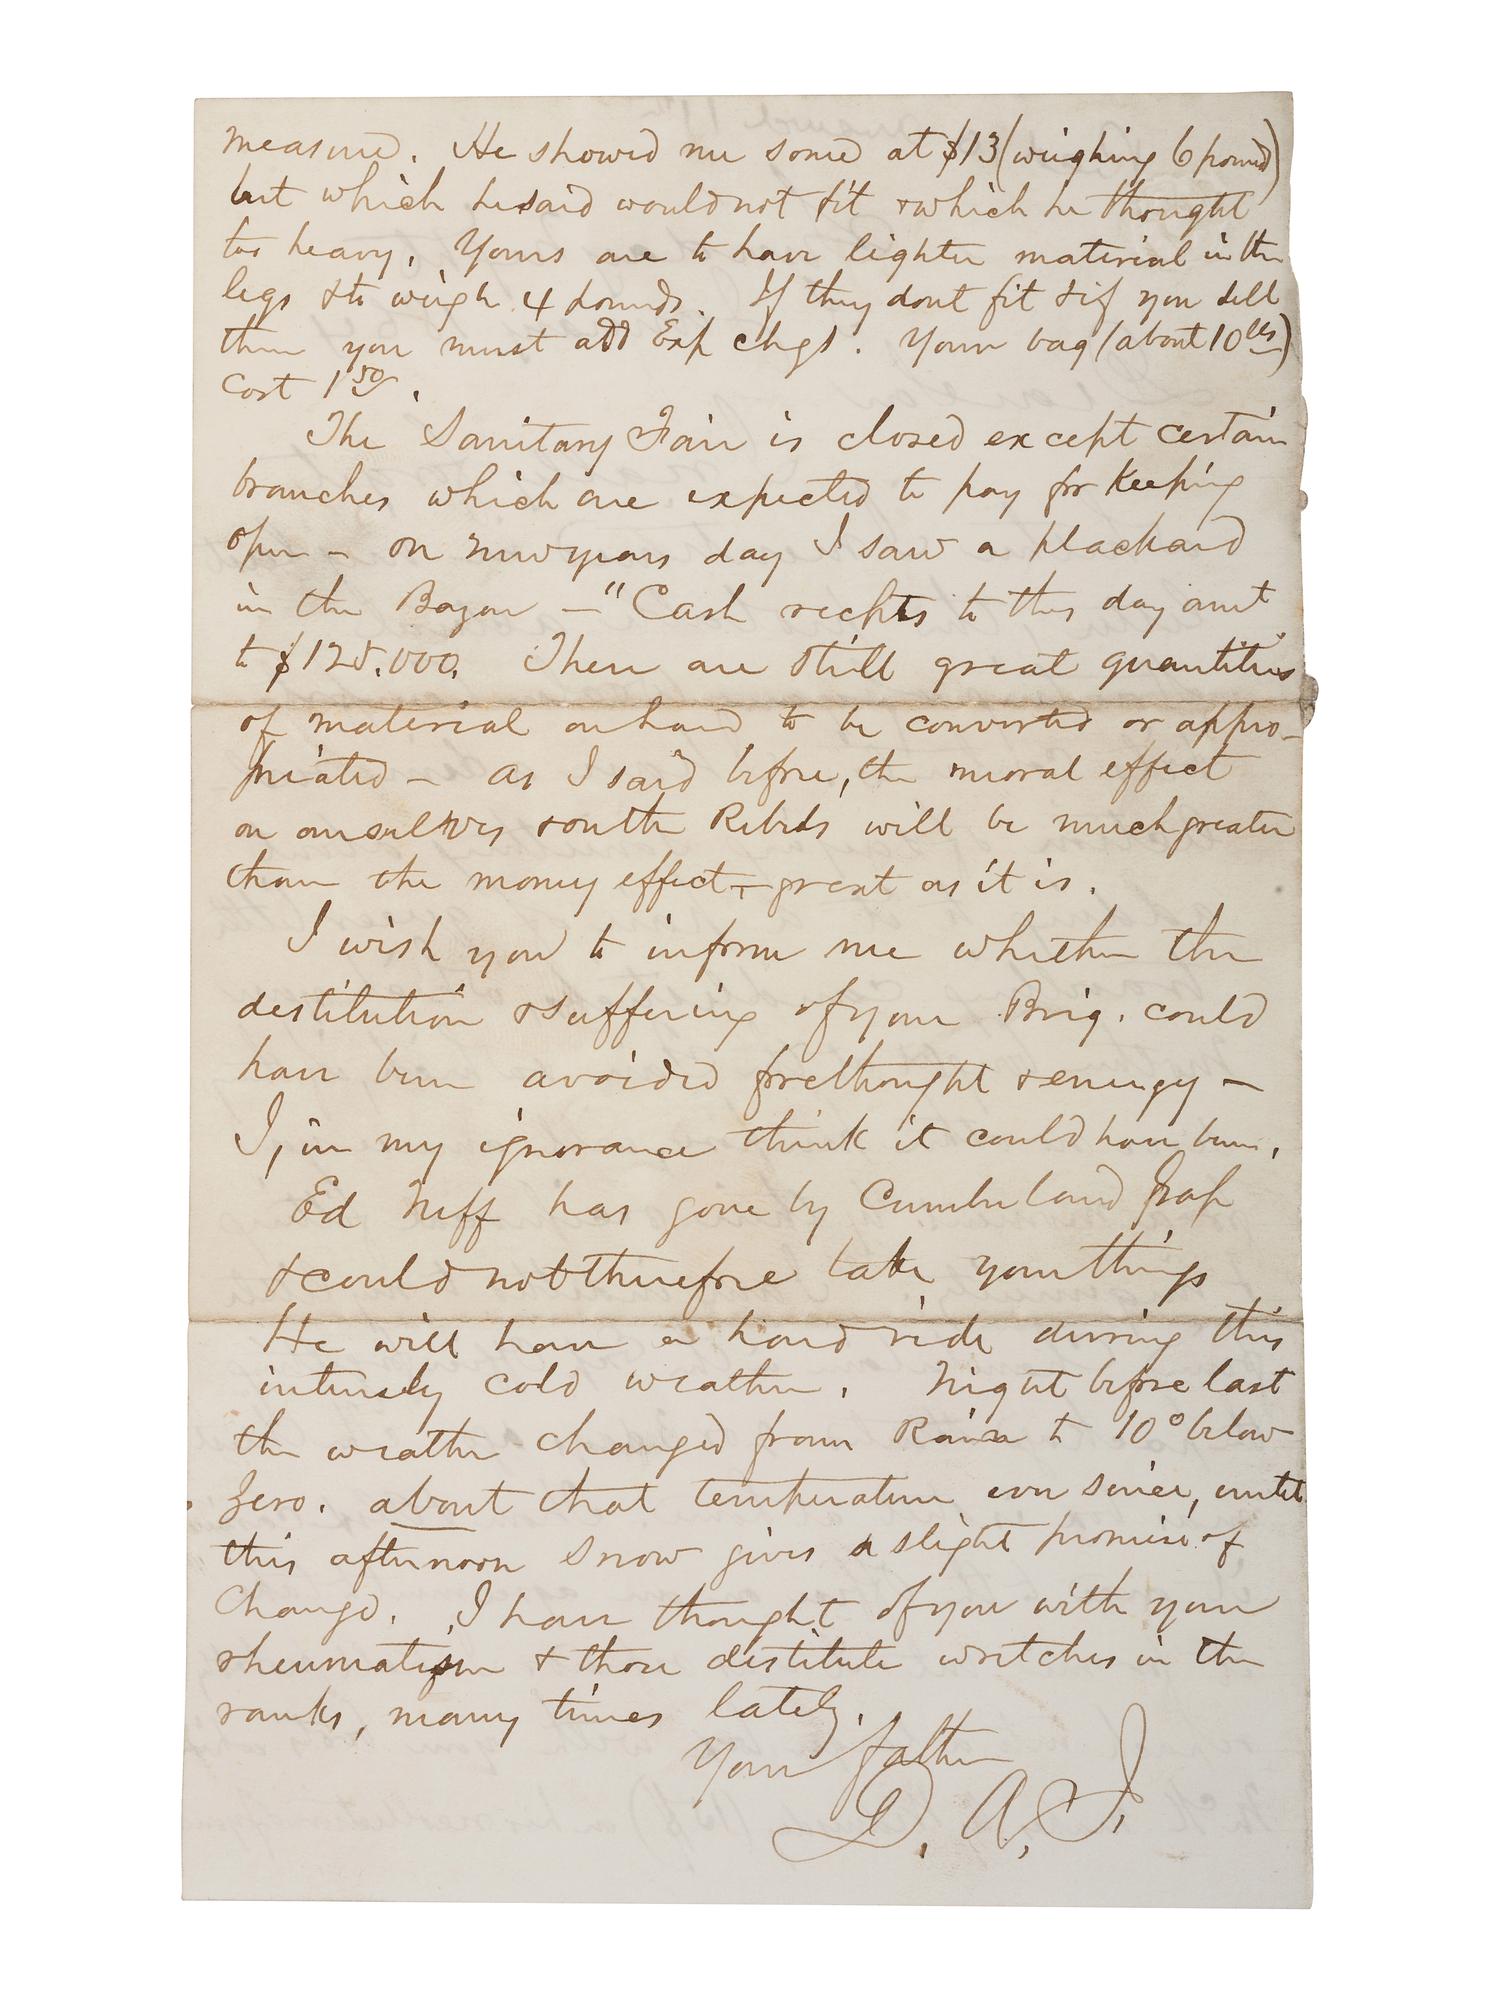 measure. He showed me some at $13 (weighing 6 pound)
but which he said would not fit & which he thought
too heavy. Yours are to have lighter material in the
legs & to weigh 4 pounds. If they dont fit & if you sell
them you must add Exp chgs. Your bag (about 10 lbs)
cost 1 50.
The Sanitary Fair is closed except certain
branches which are expected to pay for keeping
open – on newyears day I saw a plackard
in the Bazar – "Cash rechts to this day amt
to $125.000. There are still great quantities
of material on hand to be converted or appro-
priated – as I said before, the moral effect
on ourselves & on the Rebels will be much greater
than the money effect, – great as it is.
I wish you to inform me whether the
destitution & suffering of your Brig. could
have been avoided forethought & energy –
I, in my ignorance think it could have been.
Ed Neff has gone by Cumberland Gap
& could not therefore take your things
He will have a hard ride during this
intensely cold weather. Night before last
the weather changed from Rain to 10° below
Zero. about that temperature ever since, until
this afternoon snow gives a slight promise of
change. I have thought of you with your
rheumatism & those destitute wretches in the
ranks, many times lately.
Your father
D. A. J.